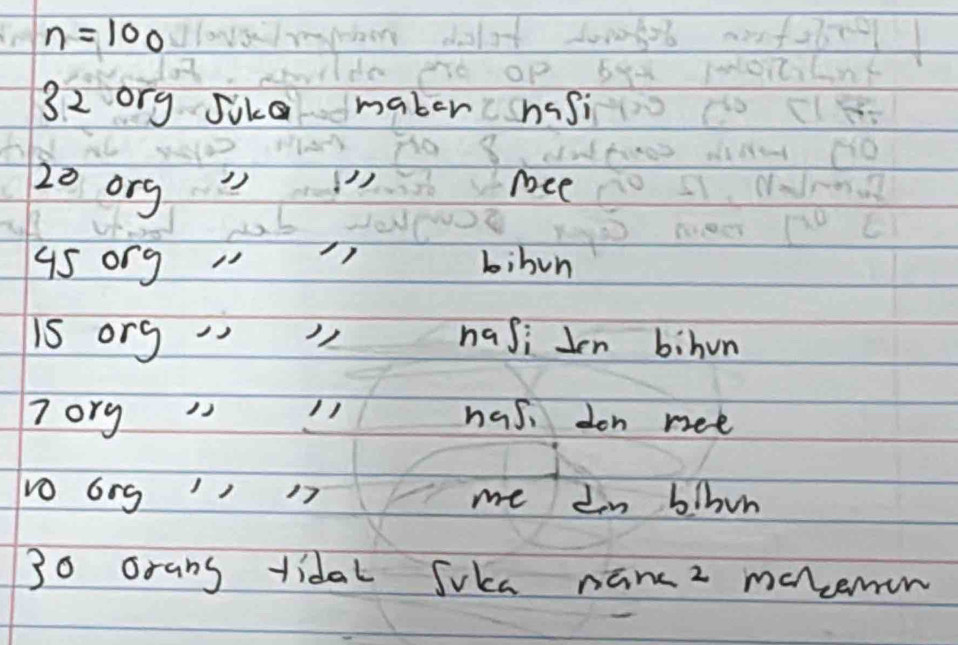 n = 100
32 org suka makan nasi
20 org " " mee
45 org " " bihun
15 org " " nasi dan bihun
7 org " " nasi dan mee
10 org " " me dan bihun
30 orang tidak suka mana2 makanan